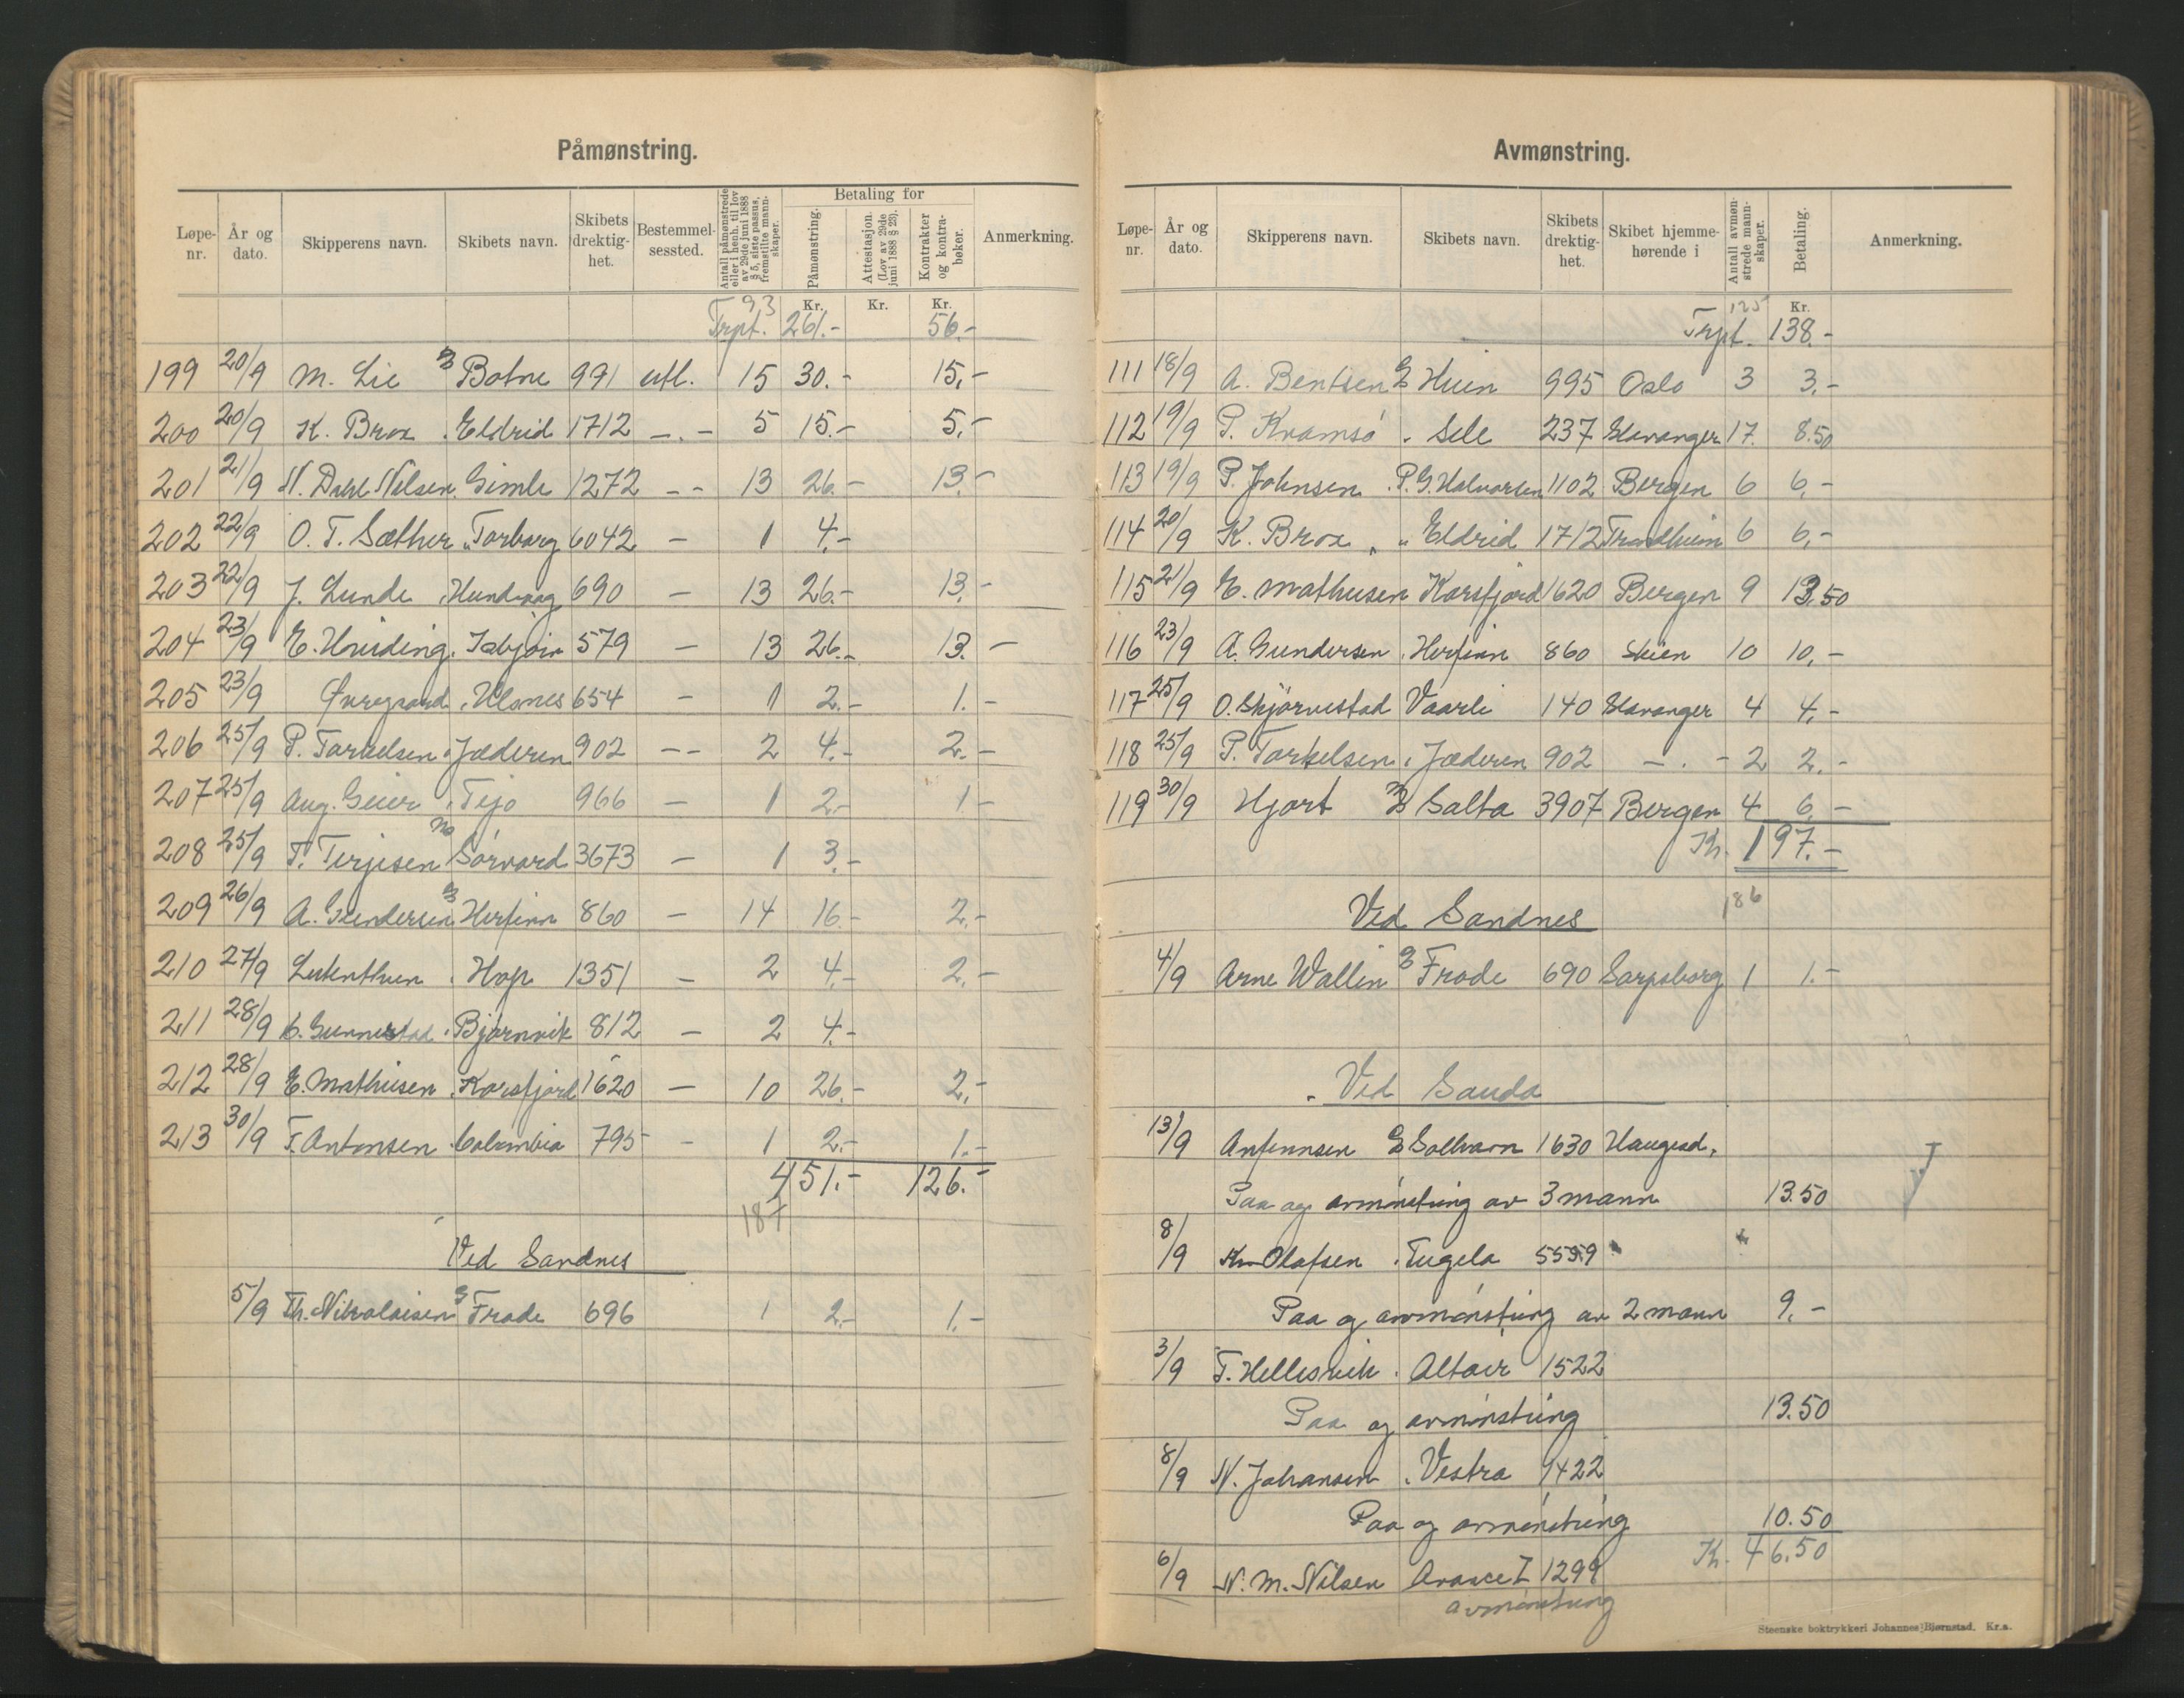 Påmønstring.
Løpe-nr. År og dato. Skipperens navn. Skibets navn. Skibets drektig-het. Bestemmel-sessted. Antall påmønstrede eller i henh. til lov av 29de juni 1888 § 5, siste passus, fremstilte mann-skaper. Betaling for Påmønstring. Attestasjon. (Lov av 29de juni 1888 § 23). Kontrakter og kontra-bøker. Anmerkning.
93 Kr. Kr. Kr.
Trpt. 261.- 56.-
199 20/9 M. Lie Botne 991 utl. 15 30.- 15.-
200 20/9 K. Brox " Eldrid 1712 -.- 5 15.- 5.-
201 21/9 N. Dahl Nilsen " Gimle 1272 -- 13 26.- 13.-
202 22/9 O. T. Sæther " Torborg 6042 - 1 4.-
203 22/9 J. Lunde " Hundvaag 690 - 13 26.- 13.-
204 23/9 E. Hørding " Isbjørn 579 - 13 26.- 13.-
205 23/9 Øvregaard " Ulsnes 654 - 1 2.- 1.-
206 25/9 P. Torkelsen " Jæderen 902 -- 2 4.- 2.-
207 25/9 Aug. Geier " Tejo 966 - 1 2.- 1.-
208 25/9 T. Terjesen Sørvard 3673 - 1 3.-
209 26/9 A. Gundersen Herfinn 860 - 14 16.- 2.-
210 27/9 " Hop 1351 - 2 4.- 2.-
211 28/9 C. Gunnestad " Bjørnvik 812 - 2 4.-
212 28/9 E. Mathisen " Korsfjord 1620 - 10 26.- 2.-
213 30/9 T. Antonsen " Columbia 795 - 1 2.- 1.-
451.- 126.-
187
Ved Sandnes
5/9 Th. Nikolaisen Frode 696 1 2.- 1.-
Avmønstring.
Løpe-nr. År og dato. Skipperens navn. Skibets navn. Skibets drektig-het. Skibet hjemme-hørende i Antall avmøn-strede mann-skaper. Betaling. Anmerkning.
125 Kr.
Trpt. 138.-
111 18/9 A. Bentsen Huin 995 Oslo 3 3.-
112 19/9 P. Kramsø " Sele 237 Stavanger 17. 8.50
113 19/9 P. Johnsen " P. G. Halvorsen 1102 Bergen 6 6.-
114 20/9 K. Brox " Eldrid 1712 Trondheim 6 6.-
115 21/9 E. Mathisen Korsfjord 1620 Bergen 9 13.50
116 23/9 A. Gundersen " Herfinn 860 Skien 10 10.-
117 25/9 O. Skjørvestad Vaarli 140 Stavanger 4 4.-
118 25/9 P. Torkelsen " Jæderen 902 -.- 2 2.-
119 30/9 Hjort Salta 3907 Bergen 4 6.-
Kr. 197.-
186
Ved Sandnes
4/9 Arne Wallin Frode 690 Sarpsborg 1 1.-
Ved Sauda
13/9 Anfinnsen Solhavn 1630 Haugesd.
Paa og avmønstring av 3 mann 13.50
8/9 Kr. Olafsen " Tugela 5559
Paa og avmønstring av 2 mann 9.-
3/9 T. Hellesvik " Altair 1522
Paa og avmønstring 13.50
8/9 N. Johansen " Vestra 1422
Paa og avmønstring 10.50
Kr. 46.50
6/9 N. M. Nilsen 1299
avmønstring
Steenske boktrykkeri Johannes Bjørnstad. Kr.a.